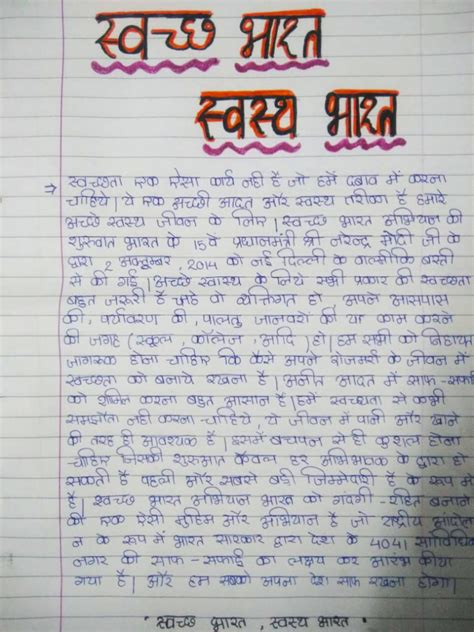 स्वच्छ भारत
स्वस्थ भारत
→ स्वच्छता एक ऐसा कार्य नही है जो हमें दबाव में करना
चाहिये। ये एक अच्छी आदत और स्वस्थ तरीका है हमारे
अच्छे स्वस्थ जीवन के लिए। स्वच्छ भारत अभियान की
शुरुवात भारत के 15वे प्रधानमंत्री श्री नरेन्द्र मोदी जी के
द्वारा 2 अक्टुबर, 2014 को नई दिल्ली के वाल्मीकि बस्ती
से की गई। अच्छे स्वास्थ के लिये सभी प्रकार की स्वच्छता
बहुत जरुरी है चाहे वो व्यक्तिगत हो, अपने आसपास
की, पर्यावरण की, पालतु जानवरो की या काम करने
की जगह (स्कुल, कॉलेज, आदि) हो। हम सभी को निहायत
जागरुक होना चाहिए कि कैसे अपने रोजमर्रा के जीवन में
स्वच्छता को बनाये रखना है। अपनी आदत में साफ-सफाई
को शामिल करना बहुत आसान है। हमें स्वच्छता से कभी
समझौता नही करना चाहिये, ये जीवन में पानी और खाने
की तरह ही आवश्यक है। इसमें बचपन से ही कुशल होना
चाहिए जिसकी शुरुआत केवल हर अभिभावक के द्वारा हो
सकती है पहली और सबसे बडी जिम्मेदारी है के रूप में
है। स्वच्छ भारत अभियान भारत को गंदगी-रहित बनाने
की एक ऐसी मुहिम और अभियान है जो राष्ट्रीय आंदोल
न के रूप में भारत सरकार द्वारा देश के 4041 सांविधिक
नगर की साफ-सफाई का लक्षय कर आरंभ किया
गया है। और हम सबको अपना देश साफ रखना होगा।
"स्वच्छ भारत, स्वस्थ भारत"